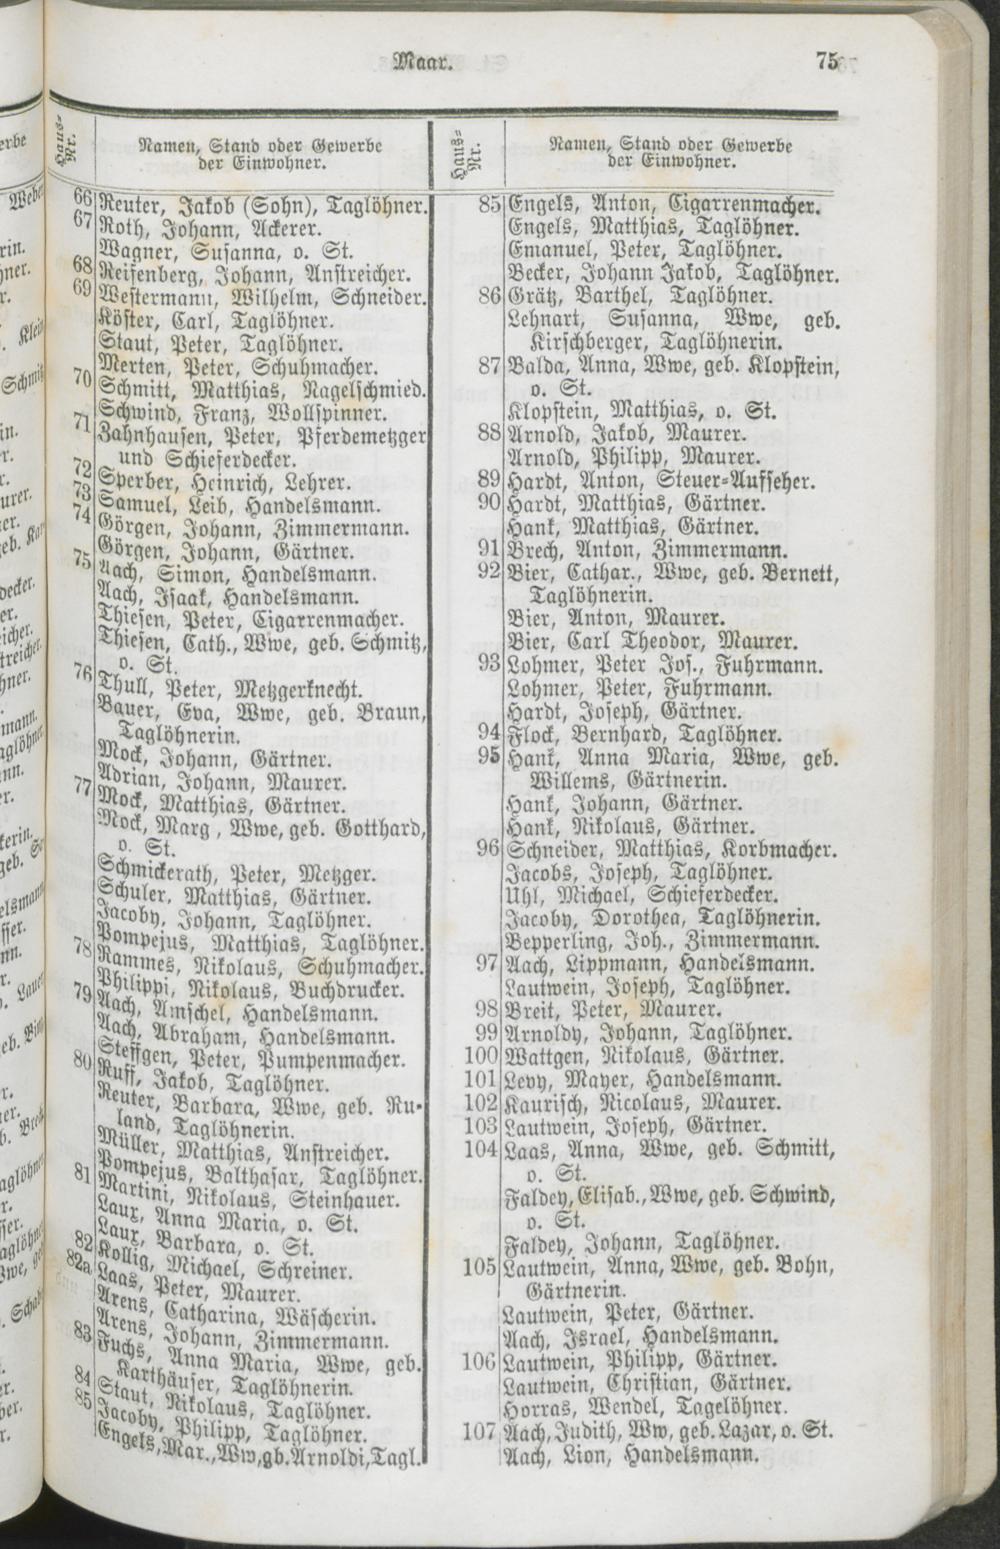 Maar.
75
Haus-Nr.
Namen, Stand oder Gewerbe
der Einwohner.
66 Reuter, Jakob (Sohn), Taglöhner.
67 Roth, Johann, Ackerer.
Wagner, Susanna, o. St.
68 Reifenberg, Johann, Anstreicher.
69 Westermann, Wilhelm, Schneider.
Köster, Carl, Taglöhner.
Staut, Peter, Taglöhner.
Merten, Peter, Schuhmacher.
70 Schmitt, Matthias, Nagelschmied.
Schwind, Franz, Wollspinner.
71 Zahnhausen, Peter, Pferdemetzger
und Schieferdecker.
72 Sperber, Heinrich, Lehrer.
73 Samuel, Leib, Handelsmann.
74 Görgen, Johann, Zimmermann.
Görgen, Johann, Gärtner.
75 Aach, Simon, Handelsmann.
Aach, Isaak, Handelsmann.
Thiesen, Peter, Cigarrenmacher.
Thiesen, Cath., Wwe, geb. Schmitz,
o. St.
76 Thull, Peter, Metzgerknecht.
Bauer, Eva, Wwe, geb. Braun,
Taglöhnerin.
Mock, Johann, Gärtner.
Adrian, Johann, Maurer.
77 Mock, Matthias, Gärtner.
Mock, Marg , Wwe, geb. Gotthard,
o. St.
Schmickerath, Peter, Metzger.
Schuler, Matthias, Gärtner.
Jacoby, Johann, Taglöhner.
Pompejus, Matthias, Taglöhner.
78 Rammes, Nikolaus, Schuhmacher.
Philippi, Nikolaus, Buchdrucker.
79 Aach, Amschel, Handelsmann.
Aach, Abraham, Handelsmann.
Steffgen, Peter, Pumpenmacher.
80 Ruff, Jakob, Taglöhner.
Reuter, Barbara, Wwe, geb. Ru-
land, Taglöhnerin.
Müller, Matthias, Anstreicher.
Pompejus, Balthasar, Taglöhner.
81 Martini, Nikolaus, Steinhauer.
Laux, Anna Maria, o. St.
Laux, Barbara, o. St.
82 Kollig, Michael, Schreiner.
82a Laas, Peter, Maurer.
Arens, Catharina, Wäscherin.
Arens, Johann, Zimmermann.
83 Fuchs, Anna Maria, Wwe, geb.
Karthäuser, Taglöhnerin.
84 Staut, Nikolaus, Taglöhner.
85 Jacoby, Philipp, Taglöhner.
Engels, Mar., Ww, gb. Arnoldi, Tagl.
Haus-Nr.
Namen, Stand oder Gewerbe
der Einwohner.
85 Engels, Anton, Cigarrenmacher.
Engels, Matthias, Taglöhner.
Emanuel, Peter, Taglöhner.
Becker, Johann Jakob, Taglöhner.
86 Grätz, Barthel, Taglöhner.
Lehnart, Susanna, Wwe, geb.
Kirschberger, Taglöhnerin.
87 Balda, Anna, Wwe, geb. Klopstein,
o. St.
Klopstein, Matthias, o. St.
88 Arnold, Jakob, Maurer.
Arnold, Philipp, Maurer.
89 Hardt, Anton, Steuer-Aufseher.
90 Hardt, Matthias, Gärtner.
Hank, Matthias, Gärtner.
91 Brech, Anton, Zimmermann.
92 Bier, Cathar., Wwe, geb. Bernett,
Taglöhnerin.
Bier, Anton, Maurer.
Bier, Carl Theodor, Maurer.
93 Lohmer, Peter Jos., Fuhrmann.
Lohmer, Peter, Fuhrmann.
Hardt, Joseph, Gärtner.
94 Flock, Bernhard, Taglöhner.
95 Hank, Anna Maria, Wwe, geb.
Willems, Gärtnerin.
Hank, Johann, Gärtner.
Hank, Nikolaus, Gärtner.
96 Schneider, Matthias, Korbmacher.
Jacobs, Joseph, Taglöhner.
Uhl, Michael, Schieferdecker.
Jacoby, Dorothea, Taglöhnerin.
Bepperling, Joh., Zimmermann.
97 Aach, Lippmann, Handelsmann.
Lautwein, Joseph, Taglöhner.
98 Breit, Peter, Maurer.
99 Arnoldy, Johann, Taglöhner.
100 Wattgen, Nikolaus, Gärtner.
101 Levy, Mayer, Handelsmann.
102 Kaurisch, Nicolaus, Maurer.
103 Lautwein, Joseph, Gärtner.
104 Laas, Anna, Wwe, geb. Schmitt,
o. St.
Faldey, Elisab., Wwe, geb. Schwind,
o. St.
Faldey, Johann, Taglöhner.
105 Lautwein, Anna, Wwe, geb. Bohn,
Gärtnerin.
Lautwein, Peter, Gärtner.
Aach, Israel, Handelsmann.
106 Lautwein, Philipp, Gärtner.
Lautwein, Christian, Gärtner.
Horras, Wendel, Tagelöhner.
107 Aach, Judith, Ww, geb. Lazar, o. St.
Aach, Lion, Handelsmann.